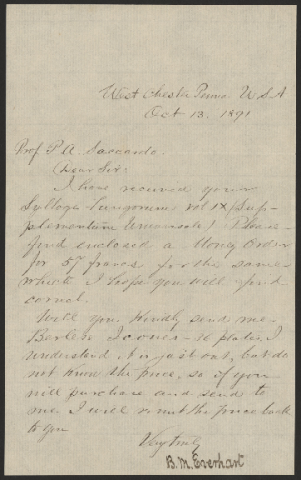 West Chester Penna U.S.A.
Oct 13. 1891
Prof P. A. Saccardo.
Dear Sir:
I have received your
Sylloge Fungorum vol IX (Sup-
plementum Universale) Please
find enclosed a Money Order
for 57 francs for the same
which I hope you will find
correct.
Will you kindly send me
Berlese Icones — plates, I
understand it is just out, but do
not know the price, so if you
will purchase and send to
me I will remit the price back
to you
Very truly
B. M. Everhart